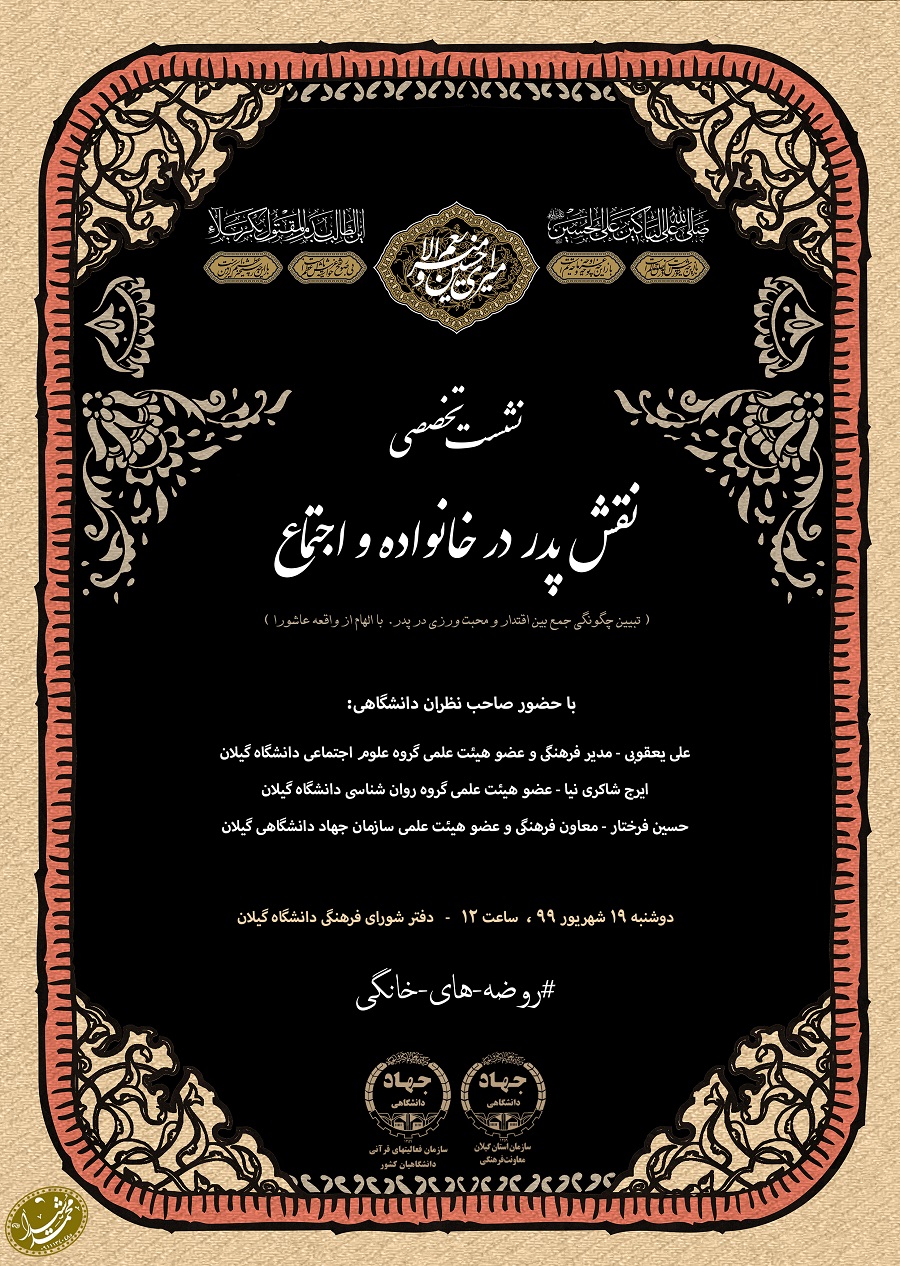 صلی الله علی الباکین علی الحسین
این الطالب بدم المقتول بکربلاء
امیری حسین و نعم الامیر
نشست تخصصی
نقش پدر در خانواده و اجتماع
( تبیین چگونگی جمع بین اقتدار و محبت ورزی در پدر، با الهام از واقعه عاشورا )
با حضور صاحب نظران دانشگاهی:
علی یعقوبی - مدیر فرهنگی و عضو هیئت علمی گروه علوم اجتماعی دانشگاه گیلان
ایرج شاکری نیا - عضو هیئت علمی گروه روان شناسی دانشگاه گیلان
حسین فرختار - معاون فرهنگی و عضو هیئت علمی سازمان جهاد دانشگاهی گیلان
دوشنبه ۱۹ شهریور ۹۹ ، ساعت ۱۲ - دفتر شورای فرهنگی دانشگاه گیلان
#روضه-های-خانگی
جهاد
دانشگاهی
سازمان استان گیلان
معاونت فرهنگی
جهاد
دانشگاهی
سازمان فعالیتهای قرآنی
دانشگاهیان کشور